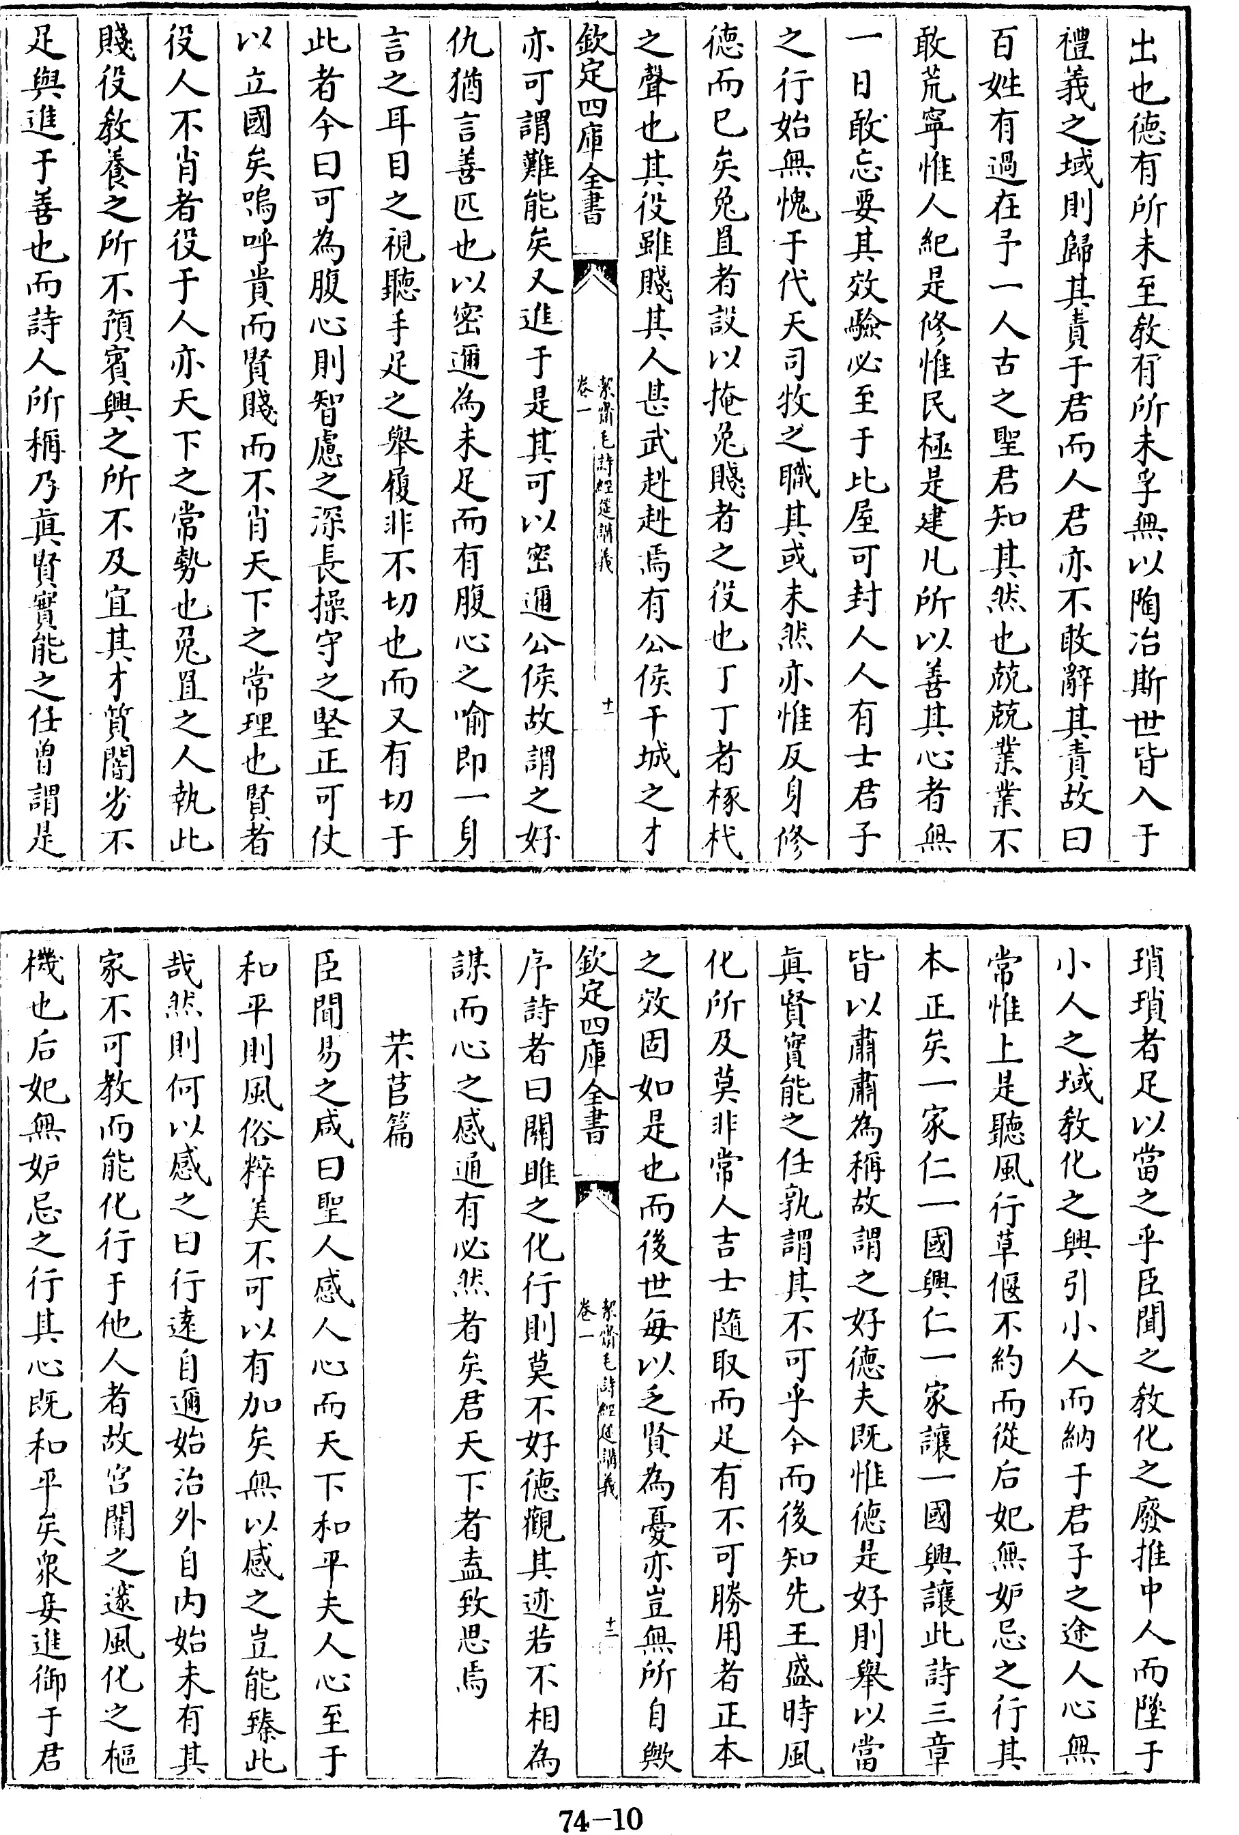 出也德有所未至教有所未孚無以陶冶斯世皆入于
禮義之域則歸其責于君而人君亦不敢辭其責故曰
百姓有過在予一人古之聖君知其然也兢兢業業不
敢荒寧惟人紀是修惟民極是建凡所以善其心者無
一日敢忘要其效驗必至于比屋可封人人有士君子
之行始無愧于代天司牧之職其或未然亦惟反身修
德而已矣兔罝者設以掩兔賤者之役也丁丁者椓杙
之聲也其役雖賤其人甚武赳赳焉有公侯干城之才
欽定四庫全書 卷一 絜齋毛詩經筵講義 十一
亦可謂難能矣又進于是其可以密邇公侯故謂之好
仇猶言善匹也以密邇為未足而有腹心之喻即一身
言之耳目之視聽手足之舉履非不切也而又有切于
此者今曰可為腹心則智慮之深長操守之堅正可仗
以立國矣嗚呼貴而賢賤而不肖天下之常理也賢者
役人不肖者役于人亦天下之常勢也兔罝之人執此
賤役教養之所不預賓興之所不及宜其才質闇劣不
足與進于善也而詩人所稱乃真賢實能之任曾謂是
瑣瑣者足以當之乎臣聞之教化之廢推中人而墜于
小人之域教化之興引小人而納于君子之途人心無
常惟上是聽風行草偃不約而從后妃無妒忌之行其
本正矣一家仁一國興仁一家讓一國興讓此詩三章
皆以肅肅為稱故謂之好德夫既惟德是好則舉以當
真賢實能之任孰謂其不可乎今而後知先王盛時風
化所及莫非常人吉士隨取而足有不可勝用者正本
之效固如是也而後世每以乏賢為憂亦豈無所自歟
欽定四庫全書 卷一 絜齋毛詩經筵講義 十二
序詩者曰關雎之化行則莫不好德觀其迹若不相為
謀而心之感通有必然者矣君天下者盍致思焉
芣苢篇
臣聞易之咸曰聖人感人心而天下和平夫人心至于
和平則風俗粹美不可以有加矣無以感之豈能臻此
哉然則何以感之曰行遠自邇始治外自內始未有其
家不可教而能化行于他人者故宮闈之邃風化之樞
機也后妃無妒忌之行其心既和平矣衆妾進御于君
74-10